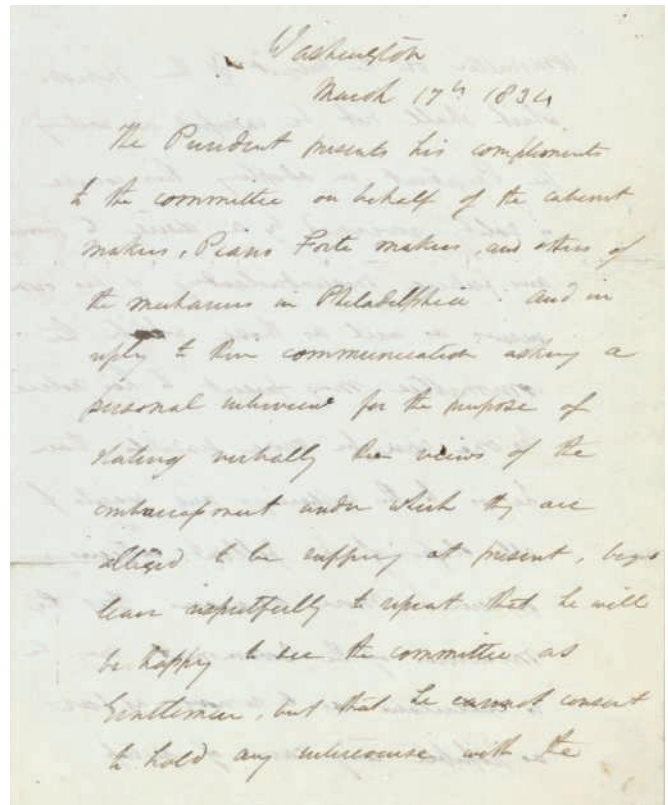 Washington
March 17th 1834
The President presents his compliments
to the committee on behalf of the cabinet
makers, Piano Forte makers, and others of
the mechanics in Philadelphia. And in
reply to their communication asking a
personal interview for the purpose of
stating verbally their views of the
embarrassment under which they are
alleged to be suffering at present, begs
leave respectfully to repeat that he will
be happy to see the committee as
Gentlemen, but that he cannot consent
to hold any intercourse with the